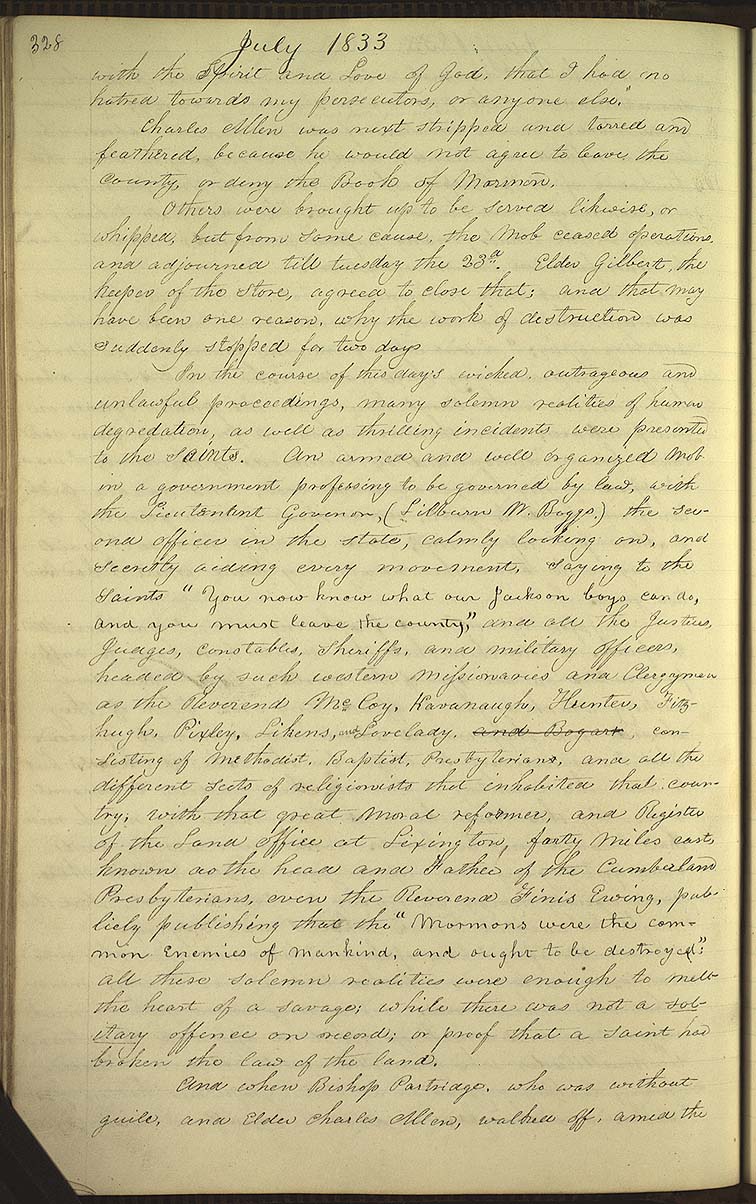 328 July 1833
with the Spirit and Love of God, that I had no
hatred towards my persecutors, or anyone else."
Charles Allen was next stripped and tarred and
feathered, because he would not agree to leave the
county, or deny the Book of Mormon.
Others were brought up to be served likewise, or
whipped, but from some cause, the Mob ceased operations,
and adjourned till tuesday the 23d. Elder Gilbert, the
keeper of the Store, agreed to close that; and that may
have been one reason, why the work of destruction was
suddenly stopped for two days
In the course of this day's wicked, outrageous and
unlawful proceedings, many solemn realities of human
degredation, as well as thrilling incidents were presented
to the Saints. An armed and well organized Mob
in a government professing to be governed by law, with
the Lieutentent Govenor, (Lilburn W. Boggs.) the sec-
ond officer in the state, calmly looking on, and
secretly aiding every movement, saying to the
Saints "You now know what our Jackson boys can do,
and you must leave the county;" and all the Justices,
Judges, constables, Sheriffs, and military officers,
headed by such western missionaries and Clergymen
as the Reverend McCoy, Kavanaugh, Hunter, Fitz-
hugh, Pixley, Likens, and Lovelady, and Bogart, con-
sisting of Methodist, Baptist, Presbyterians, and all the
different sects of religionists that inhabited that coun-
try; with that great moral reformer, and Register
of the Land office at Lixington, forty miles east,
known as the head and Father of the Cumberland
Presbyterians, even the Reverend Finis Ewing, pub-
licly publishing that the "Mormons were the com-
mon Enemies of mankind, and ought to be destroyed":
all these solemn realities were enough to melt
the heart of a savage; while there was not a sol-
itary offence on record; or proof that a Saint had
broken the law of the land.
And when Bishop Partridge, who was without
guile, and Elder Charles Allen, walked off, amid the